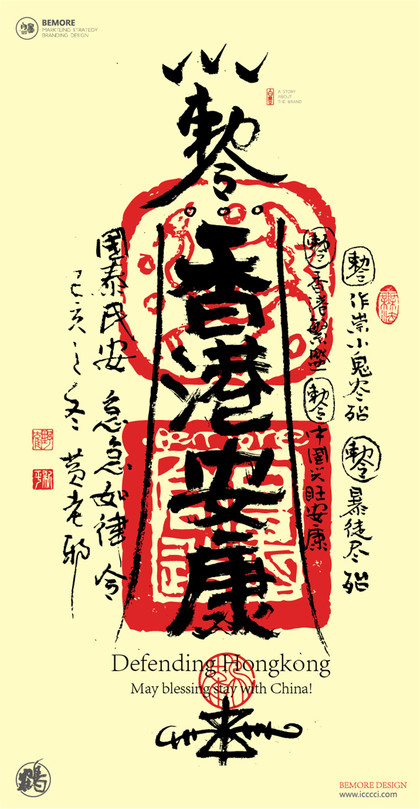 BEMORE
MARKETING STRATEGY
BRANDING DESIGN
A STORY
ABOUT
THE BRAND
敕令
香港安康
敕令作祟小鬼尽殆
敕令暴徒尽殆
敕令香港繁盛
敕令中国兴旺安康
国泰民安 急急如律令
己亥之冬 黄老邪
Bemore
Defending Hongkong
May blessing stay with China!
鹤
BEMORE DESIGN
www.icccci.com